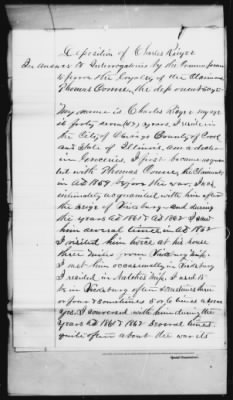 Deposition of Charles Kinzee
In answer to Interrogatories by the Commissioners
to prove the Loyalty of the Claimant
Thomas Conner, the deponent says
My name is Charles Kinzee my age
is forty seven (47) years I reside in
the City of Chicago County of Cook
and State of Illinois. am a dealer
in Groceries. I first became acquaint
ed with Thomas Conner, the Claimant,
in AD 1859 before the war, I was
intimately acquainted with him after
the siege of Vicksburg and during
the years AD 1861 & AD 1862 I saw
him several times in AD 1862
I visited him twice at his house
three miles from Vicksburg Miss.
I met him occasionally in Vicksburg
I resided in Natchez Miss. I used to
be in Vicksburg often sometimes three
or four & sometimes 5 or 6 times a
year. I conversed with him during the
years AD 1861 & 1862 several times
quite often about the war its